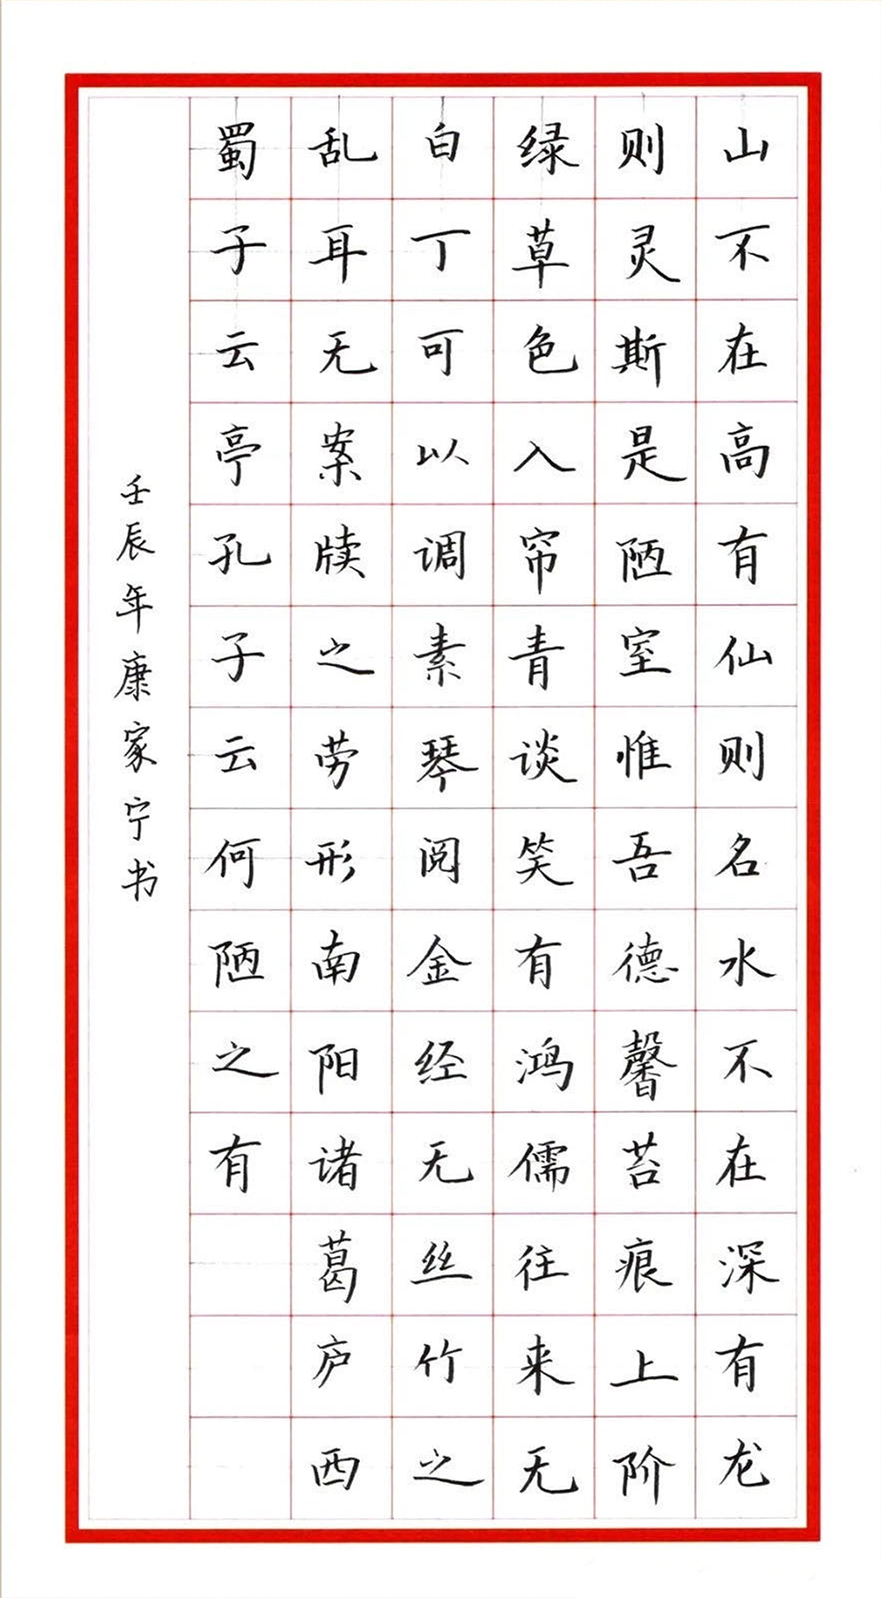 山不在高有仙则名水不在深有龙
则灵斯是陋室惟吾德馨苔痕上阶
绿草色入帘青谈笑有鸿儒往来无
白丁可以调素琴阅金经无丝竹之
乱耳无案牍之劳形南阳诸葛庐西
蜀子云亭孔子云何陋之有
壬辰年康家宁书